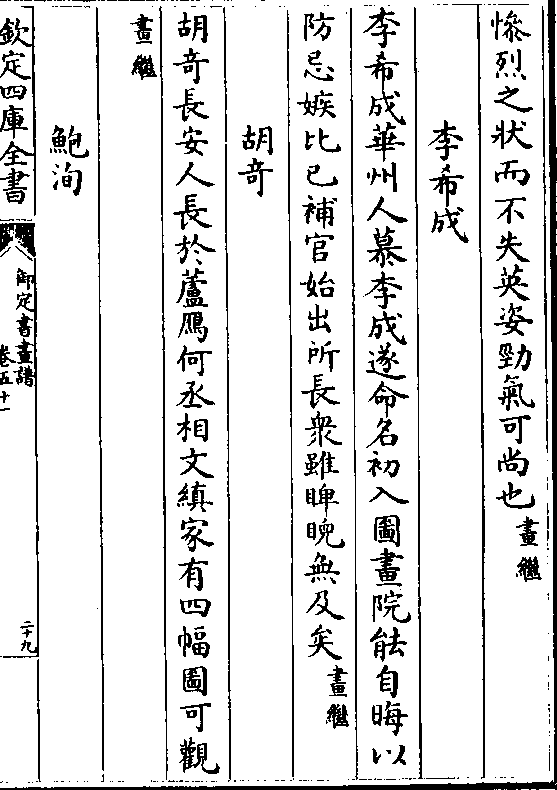 慘烈之狀而不失英姿勁氣可尚也畫繼
李希成
李希成華州人慕李成遂命名初入圖畫院能自晦以
防忌嫉比已補官始出所長衆雖睥睨無及矣畫繼
胡竒
胡竒長安人長於蘆鴈何丞相文縝家有四幅圖可觀
畫繼
鮑洵
欽定四庫全書
御定書畫譜
卷五十一
二十九